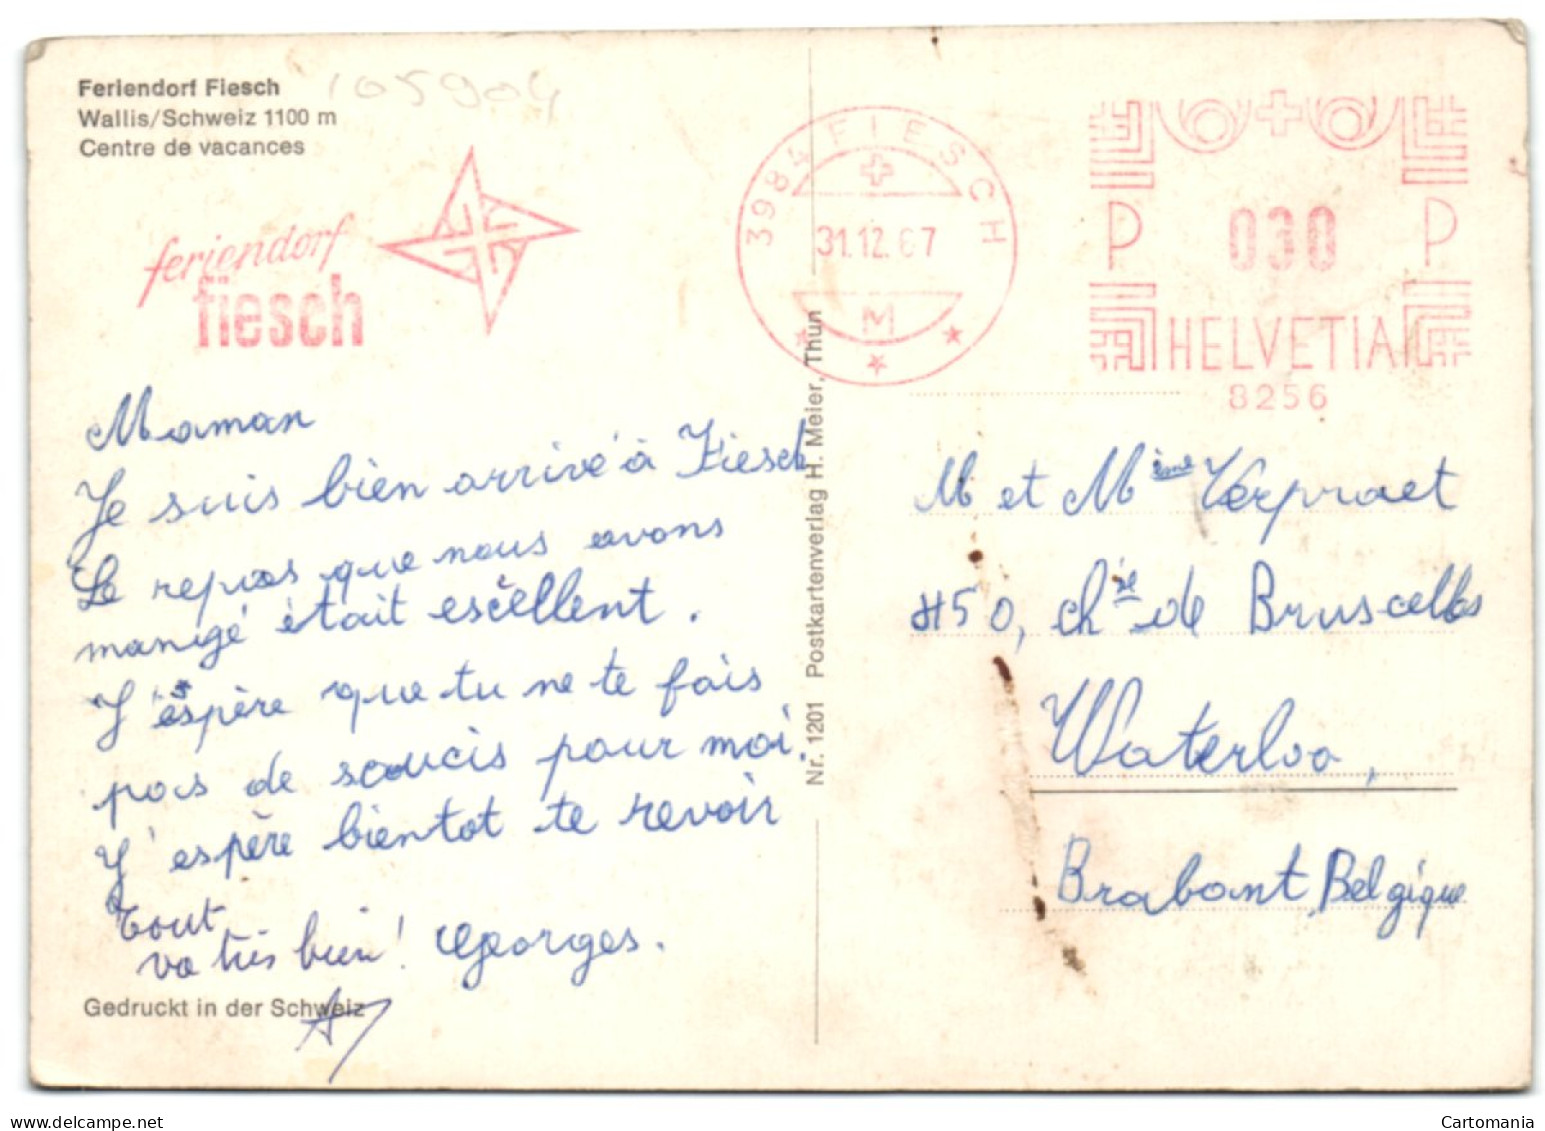 Feriendorf Fiesch
Wallis/Schweiz 1100 m
Centre de vacances
105904
feriendorf
fiesch
3984 FIESCH
31.12.67
M
P 030 P
HELVETIA
8256
Maman
Je suis bien arrivé à Fiesch
Le repas que nous avons
mangé était escellent.
J'espère que tu ne te fais
pas de soucis pour moi.
J'espère bientot te revoir
Tout
va très bien! Georges.
Gedruckt in der Schweiz
Nr. 1201 Postkartenverlag H. Meier, Thun
M et Mème Verpraet
450, chée de Bruscelles
Waterloo,
Brabant, Belgique
Cartomania